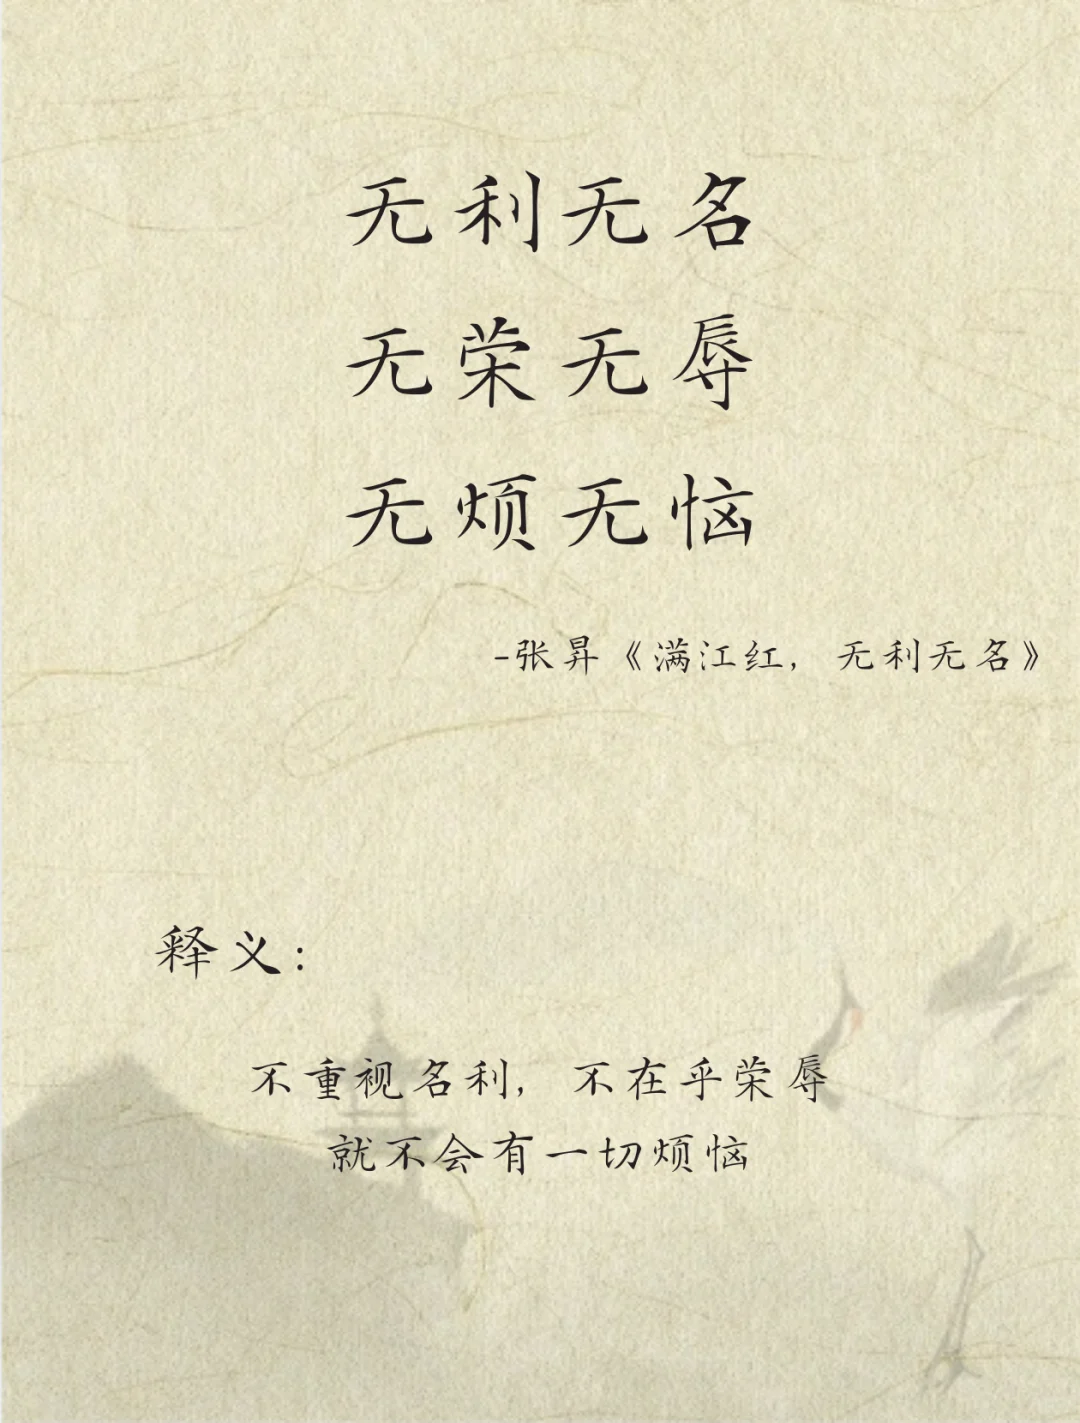 无利无名
无荣无辱
无烦无恼
-张昇《满江红，无利无名》
释义：
不重视名利，不在乎荣辱
就不会有一切烦恼